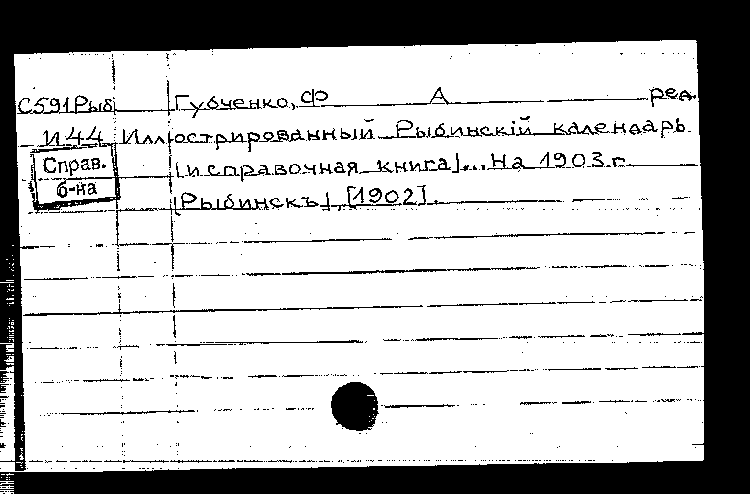 С591Рыб Губченко, Ф А ред.
И44 Иллюстрированный Рыбинскій календарь
Справ. [и справочная книга]... На 1903 г.
б-на [Рыбинскъ], [1902].